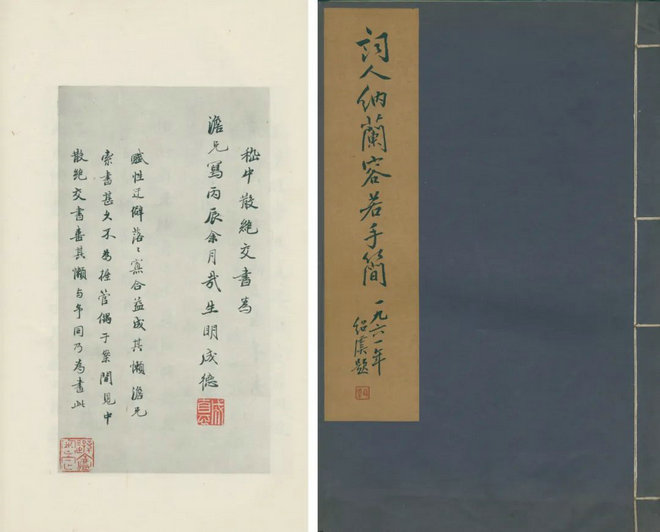 嵇中散絶交書為
澹兄寫丙辰余月哉生明成德
賦性迂僻落〻寡合益成其懶澹兄
索書甚久不為握管偶于案間見中
散絶交書喜其懶与予同乃為書此
詞人納蘭容若手簡
一九六一年
紹虞題